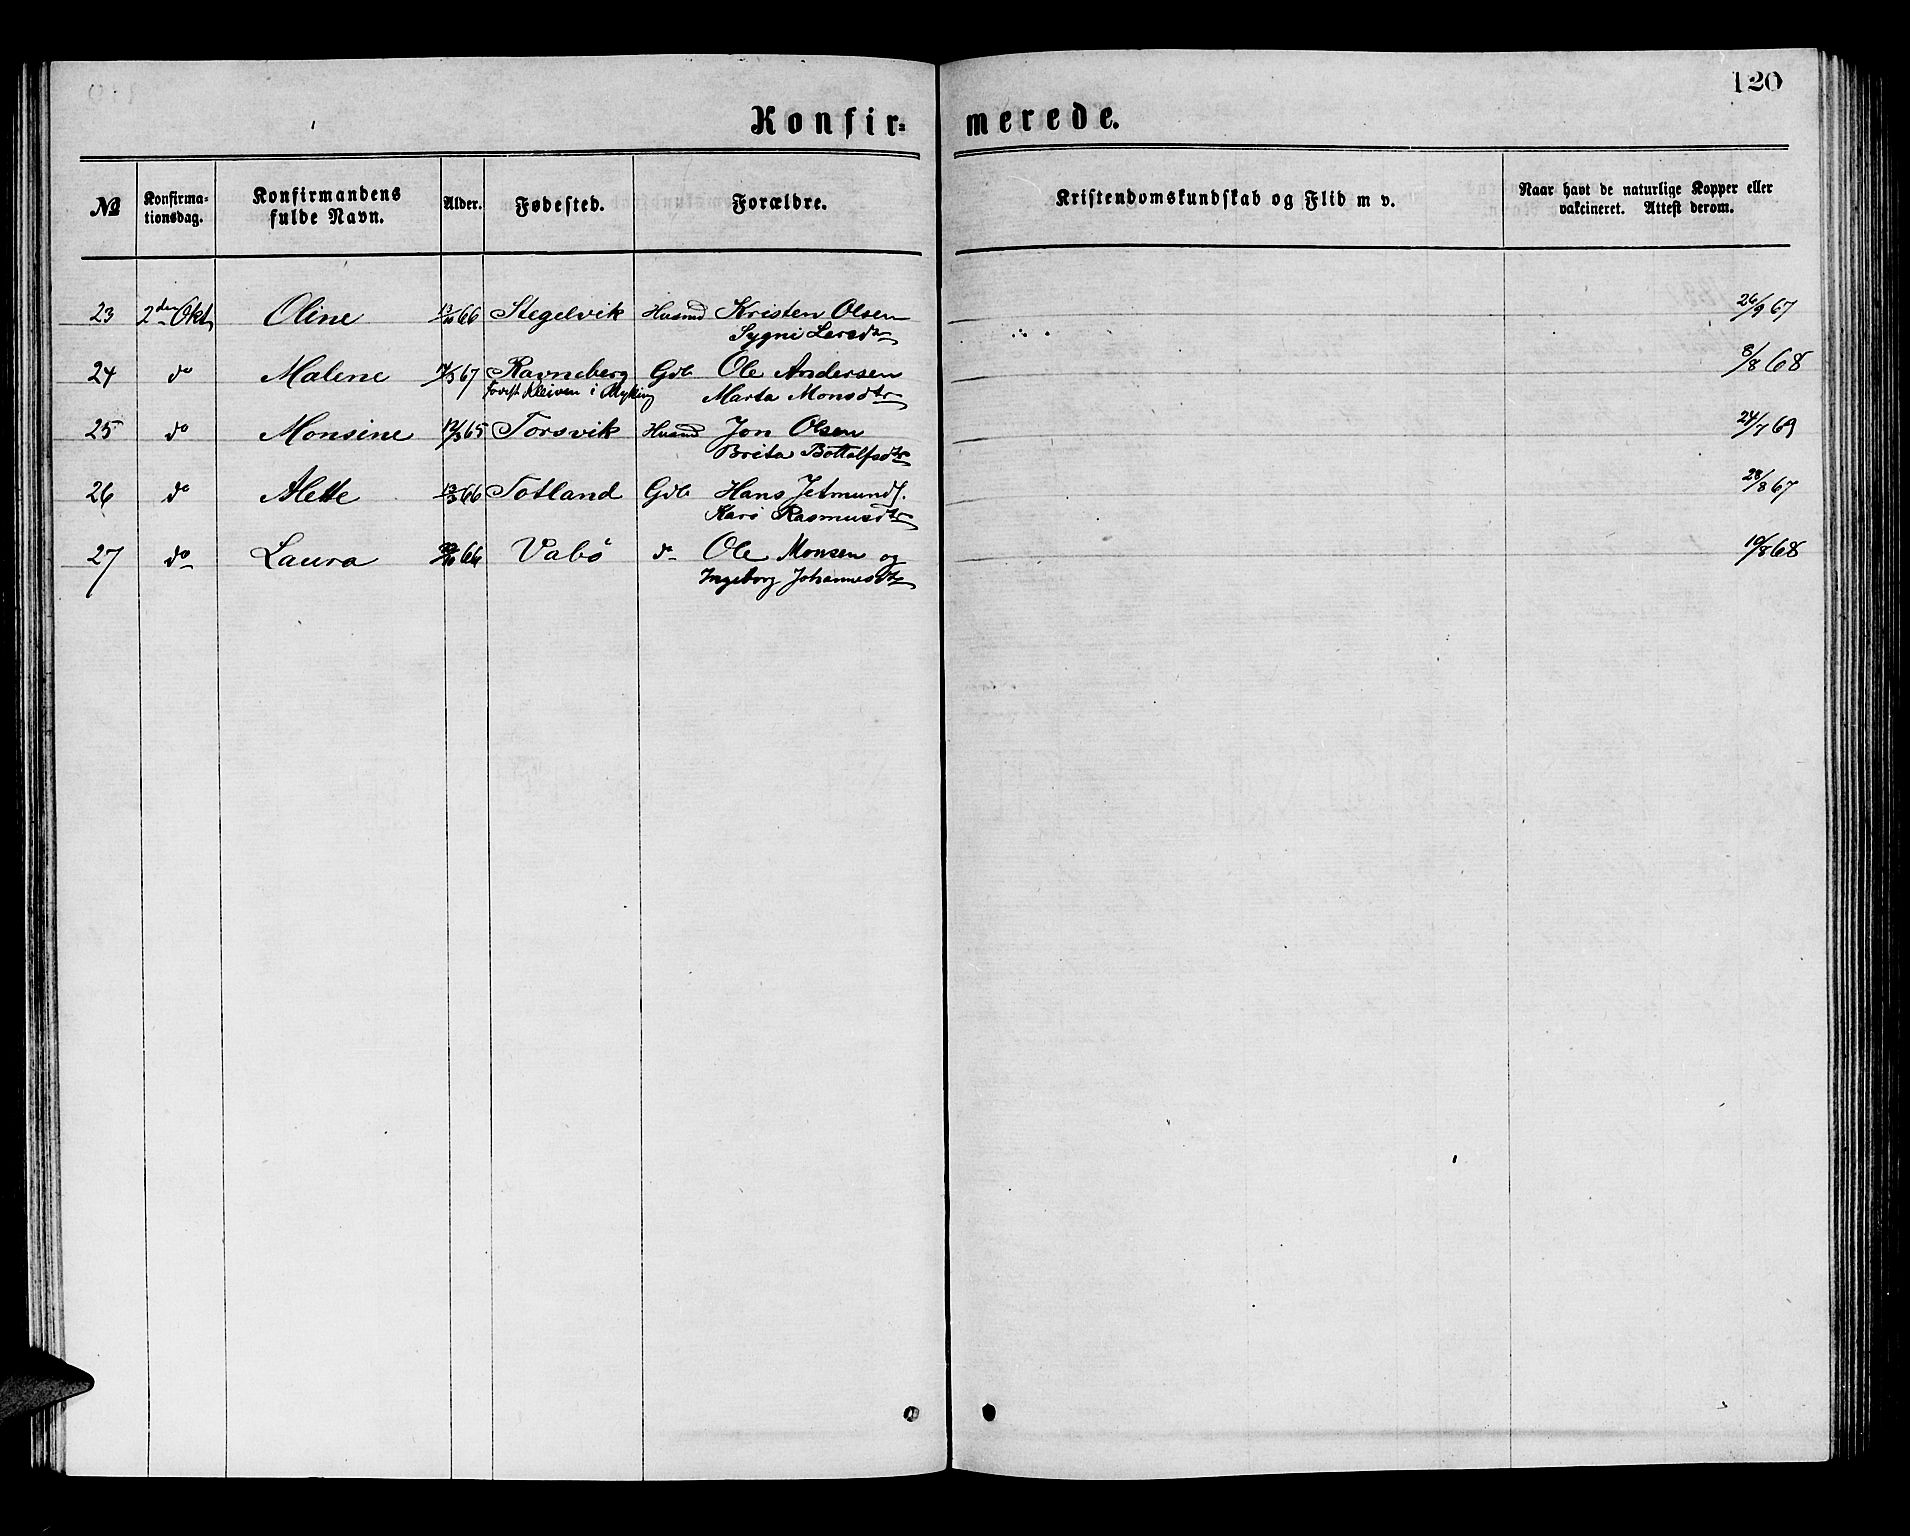 120
Konfir= merede.
№ Konfirma-tionsdag. Konfirmandens fulde Navn. Alder. Fødested. Forældre. Kristendomskundskab og Flid m v. Naar havt de naturlige Kopper eller vakcineret. Attest derom.
23 2den Okt Oline 66 Stegelvik Husmd Kristen Olsen 26/9 67
Sygni Larsdtr
24 do Malene 67 Ravneberg Gdb Ole Andersen 8/8 68
Kleiven i Myking Marta Monsdtr
25 do Monsine 12/3 65 Torsvik Husmd Jon Olsen 24/7 69
Brita Bottolfsdtr
26 do Alette 66 Totland Gdb Hans Jetmunds. 28/8 67
Kari Rasmusdtr
27 do Laura 66 Vabø do Ole Monsen og 10/8 68
Ingeborg Johannesdtr